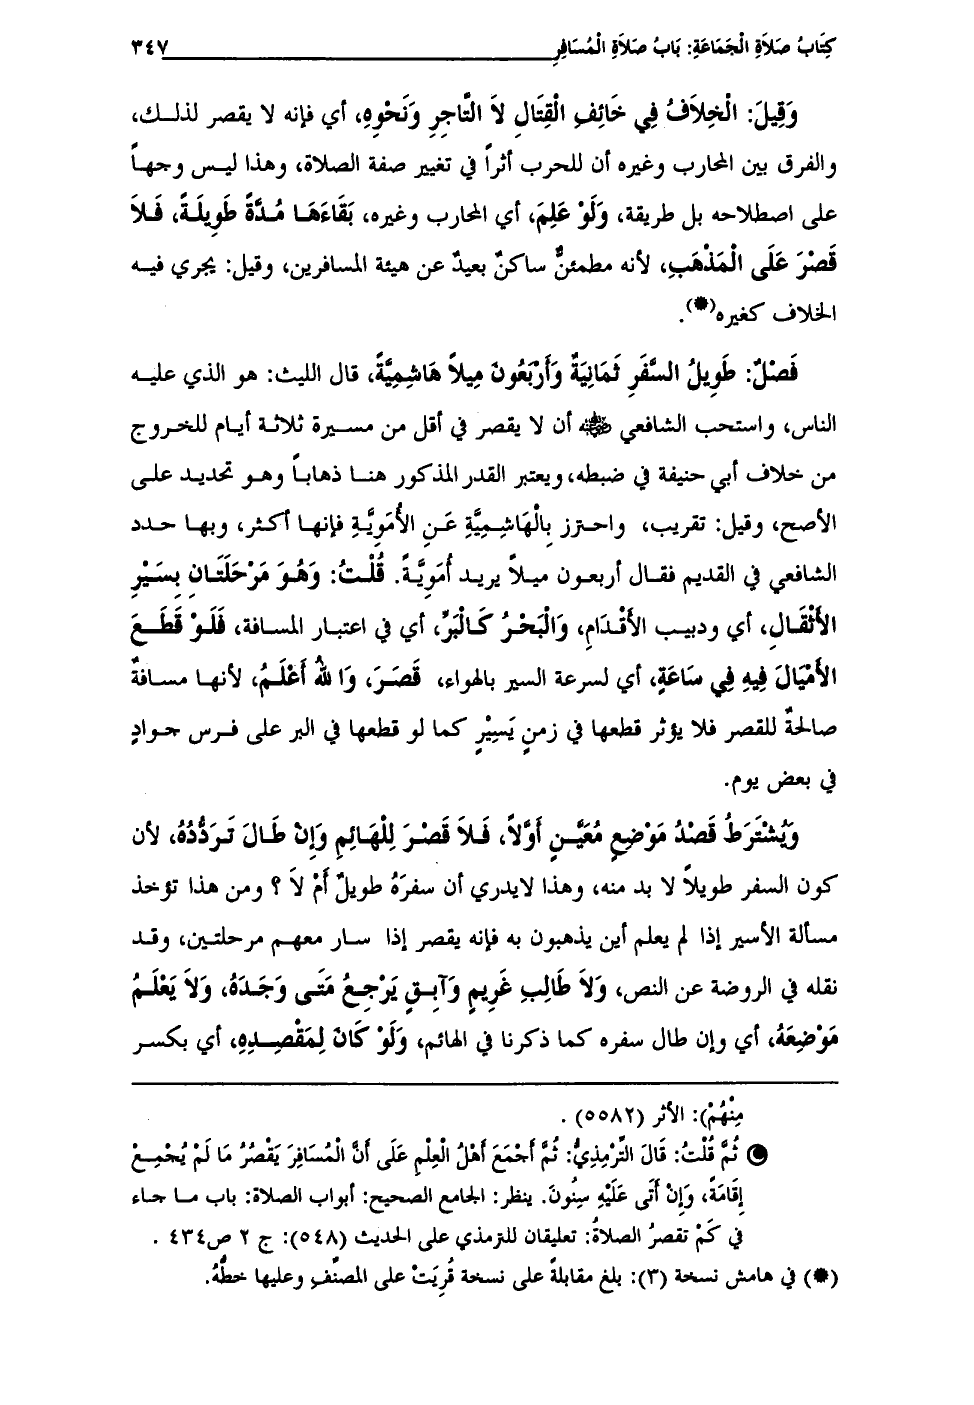 كِتَابُ صَلاَةِ الْجَمَاعَةِ: بَابُ صَلاَةِ الْمُسَافِرِ ٣٤٧
وَقِيلَ: الْخِلاَفُ فِي خَائِفِ الْقِتَالِ لاَ التَّاجِرِ وَنَحْوِهِ، أي فإنه لا يقصر لذلك،
والفرق بين المحارب وغيره أن للحرب أثراً في تغيير صفة الصلاة، وهذا ليس وجهاً
على اصطلاحه بل طريقة، وَلَوْ عَلِمَ، أي المحارب وغيره، بَقَاءَهَا مُدَّةً طَوِيلَةً، فَلاَ
قَصْرَ عَلَى الْمَذْهَبِ، لأنه مطمئنٌّ ساكنٌ بعيدٌ عن هيئة المسافرين، وقيل: يجري فيه
الخلاف كغيره(*).
فَصْلٌ: طَوِيلُ السَّفَرِ ثَمَانِيَةٌ وَأَرْبَعُونَ مِيلاً هَاشِمِيَّةً، قال الليث: هو الذي عليه
الناس، واستحب الشافعي ﷺ أن لا يقصر في أقل من مسيرة ثلاثة أيام للخروج
من خلاف أبي حنيفة في ضبطه، ويعتبر القدر المذكور هنا ذهاباً وهو تحديد على
الأصح، وقيل: تقريب، واحترز بِالْهَاشِمِيَّةِ عَنِ الأُمَوِيَّةِ فإنها أكثر، وبها حدد
الشافعي في القديم فقال أربعون ميلاً يريد أُمَوِيَّةً. قُلْتُ: وَهُوَ مَرْحَلَتَانِ بِسَيْرِ
الأَثْقَالِ، أي ودبيب الأَقْدَامِ، وَالْبَحْرُ كَالْبَرِّ، أي في اعتبار المسافة، فَلَوْ قَطَعَ
الأَمْيَالَ فِيهِ فِي سَاعَةٍ، أي لسرعة السير بالهواء، قَصَرَ، وَاللهُ أَعْلَمُ، لأنها مسافةٌ
صالحةٌ للقصر فلا يؤثر قطعها في زمنٍ يَسِيْرٍ كما لو قطعها في البر على فرس جوادٍ
في بعض يوم.
وَيُشْتَرَطُ قَصْدُ مَوْضِعٍ مُعَيَّنٍ أَوَّلاً، فَلاَ قَصْرَ لِلْهَائِمِ وَإِنْ طَالَ تَرَدُّدُهُ، لأن
كون السفر طويلاً لا بد منه، وهذا لايدري أن سفرَهُ طويلٌ أَمْ لاَ ؟ ومن هذا تؤخذ
مسألة الأسير إذا لم يعلم أين يذهبون به فإنه يقصر إذا سار معهم مرحلتين، وقد
نقله في الروضة عن النص، وَلاَ طَالِبِ غَرِيمٍ وَآبِقٍ يَرْجِعُ مَتَى وَجَدَهُ، وَلاَ يَعْلَمُ
مَوْضِعَهُ، أي وإن طال سفره كما ذكرنا في الهائم، وَلَوْ كَانَ لِمَقْصِدِهِ، أي بكسر
مِنْهُمْ): الأثر (٥٥٨٢) .
ثُمَّ قُلْتُ: قَالَ التِّرْمِذِيُّ: ثُمَّ أَجْمَعَ أَهْلُ الْعِلْمِ عَلَى أَنَّ الْمُسَافِرَ يَقْصُرُ مَا لَمْ يُجْمِعْ
إِقَامَةً، وَإِنْ أَتَى عَلَيْهِ سِنُونَ. ينظر: الجامع الصحيح: أبواب الصلاة: باب ما جاء
في كَمْ تقصرُ الصلاةُ: تعليقان للترمذي على الحديث (٥٤٨): ج ٢ ص٤٣٤ .
(*) في هامش نسخة (٣): بلغ مقابلةً على نسخة قُرِيَتْ على المصنِّفِ وعليها خطُّهُ.